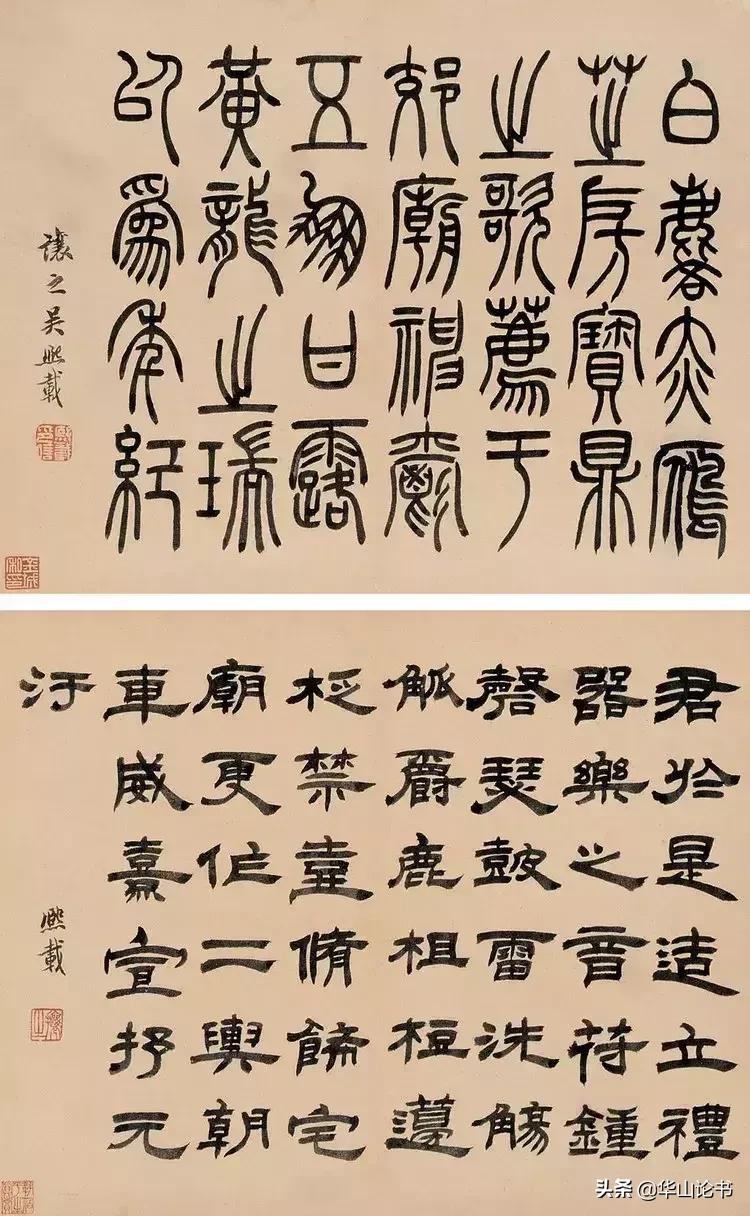 白麐赤雁
芝房寶鼎
之歌薦于
郊廟神爵
五鳳甘露
黃龍之瑞
㠯為年紀
讓之吳熙載
君於是造立禮
器樂之音符鍾
磬瑟鼓雷洗觴
觚爵鹿柤梪籩
柉禁壺脩飾宅
廟更作二輿朝
車威熹宣抒元
汙
熙載
头条 @华山论书